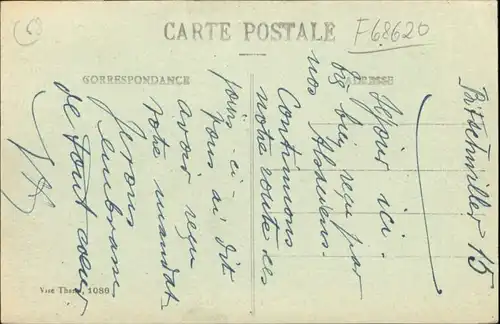 CARTE POSTALE
F68620
68
CORRESPONDANCE
ADRESSE
Bitschwiller 15
Séjour ici.
bien reçu par
nos Alsaciens.
Continuons
notre route ces
jours-ci.
vous ai dit
avoir reçu
votre mandat.
Je vous
embrasse
de tout cœur
1089